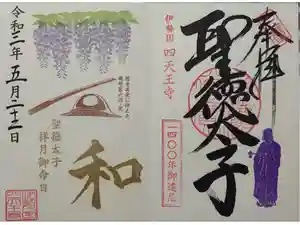 奉拝
伊勢国 四天王寺
聖徳太子
一四〇〇年御遠忌
和
聖徳太子
祥月御命日
令和三年五月二十二日